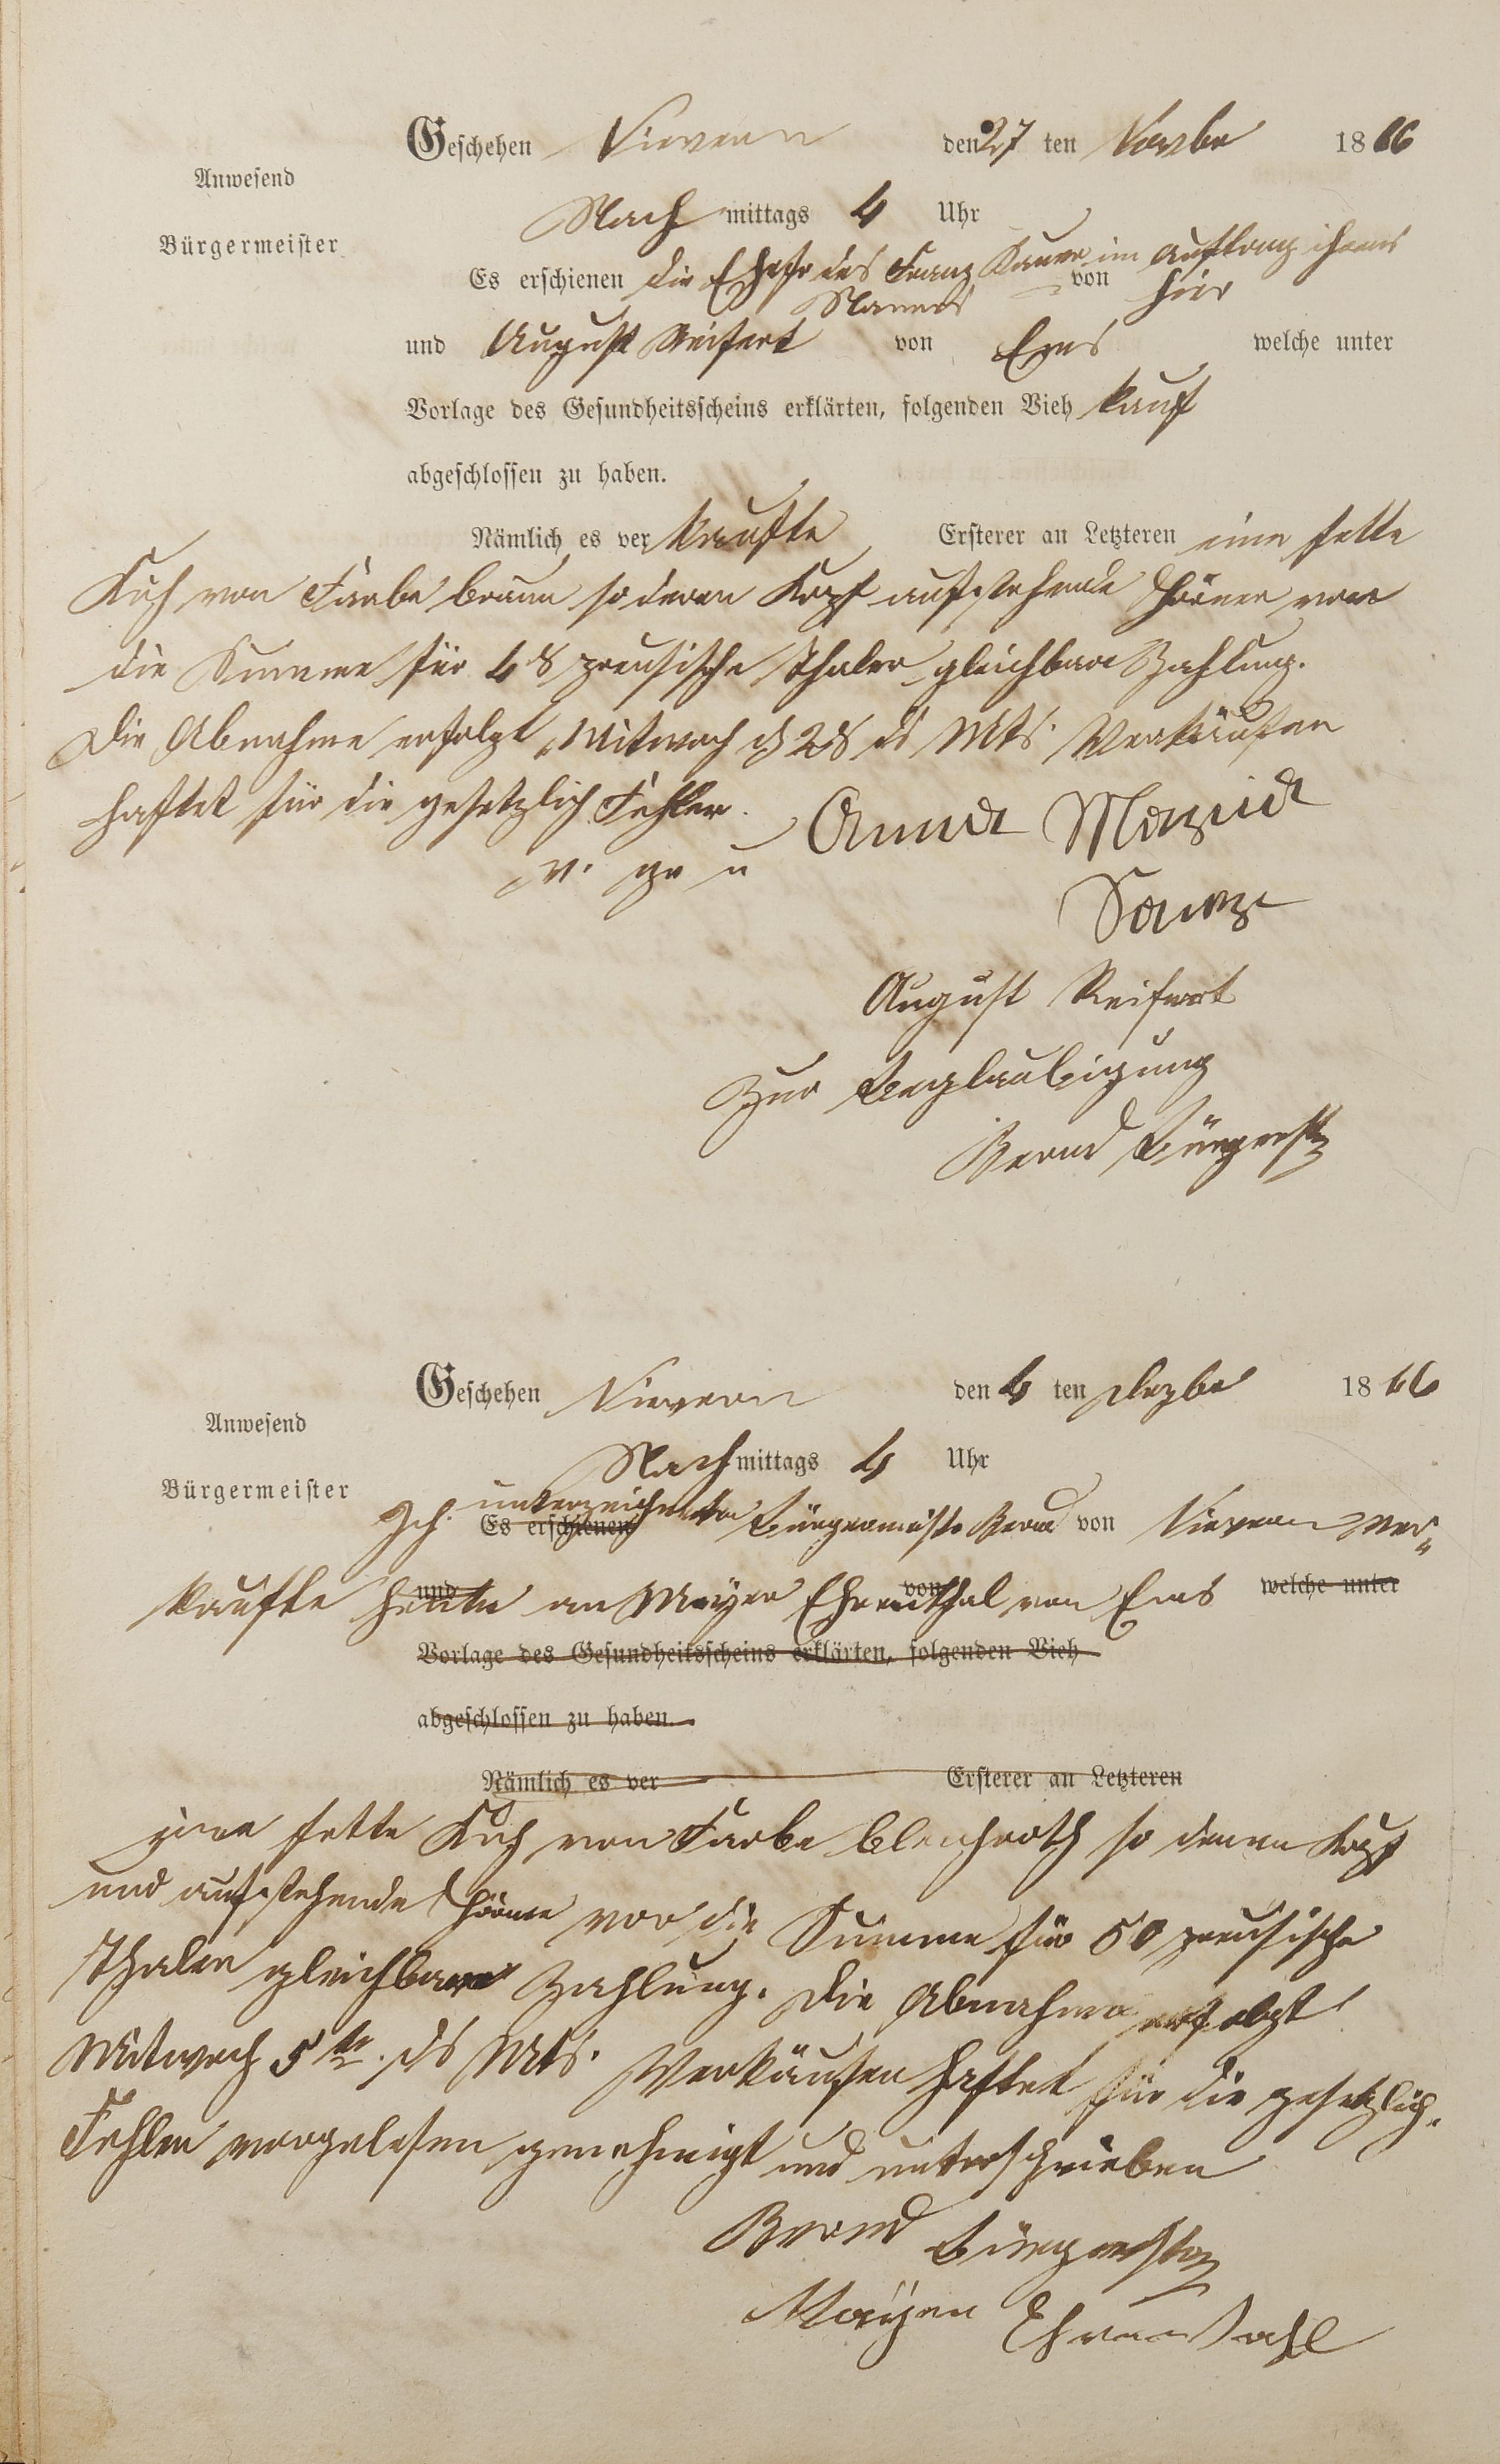 Geschehen Nievern den 27 ten Novbr 1866
Anwesend
Bürgermeister
Nach mittags 4 Uhr
Es erschienen die Ehefr des Franz im Auftrag ihres
Mannes von hier
und August Reifert von Ems welche unter
Vorlage des Gesundheitsscheins erklärten, folgenden Vieh kauf
abgeschlossen zu haben.
Nämlich es ver kaufte Ersterer an Letzteren eine fette
Kuh von Farbe braun so deren Kopf aufstehende Hörner vor
die Summe für 48 preusische Thaler gleichbare Zahlung.
Die Abnahme erfolgt Mitwoch d 28 ds Mts. Verkäufer
haftet für die gesetzlich Fehler.
v. g u Anna Maria
August Reifert
Zur Beglaubigung
Bernd Bürgermstr
Geschehen Nievern den 4 ten Dezbr 1866
Anwesend
Bürgermeister
Nach mittags 4 Uhr
Ich unterzeichneter Es erschienen Bürgermeister Bernd von Nievern ver-
kaufte heute und an Mayer Ehrenthal von von Ems welche unter
Vorlage des Gesundheitsscheins erklärten, folgenden Vieh
abgeschlossen zu haben.
Nämlich es ver Ersterer an Letzteren
eine fette Kuh von Farbe bleichroth so denen Kopf
und aufstehende Hörner vor die Summe für 50 preusische
Thaler gleichbare Zahlung. Die Abnahme erfolgt
Mitwoch 5te. ds Mts. Verkäufer haftet für die gesetzlich.
Fehler vorgelesen genehmigt und unterschrieben
Bernd Bürgermstr
Mayer Ehrenthal